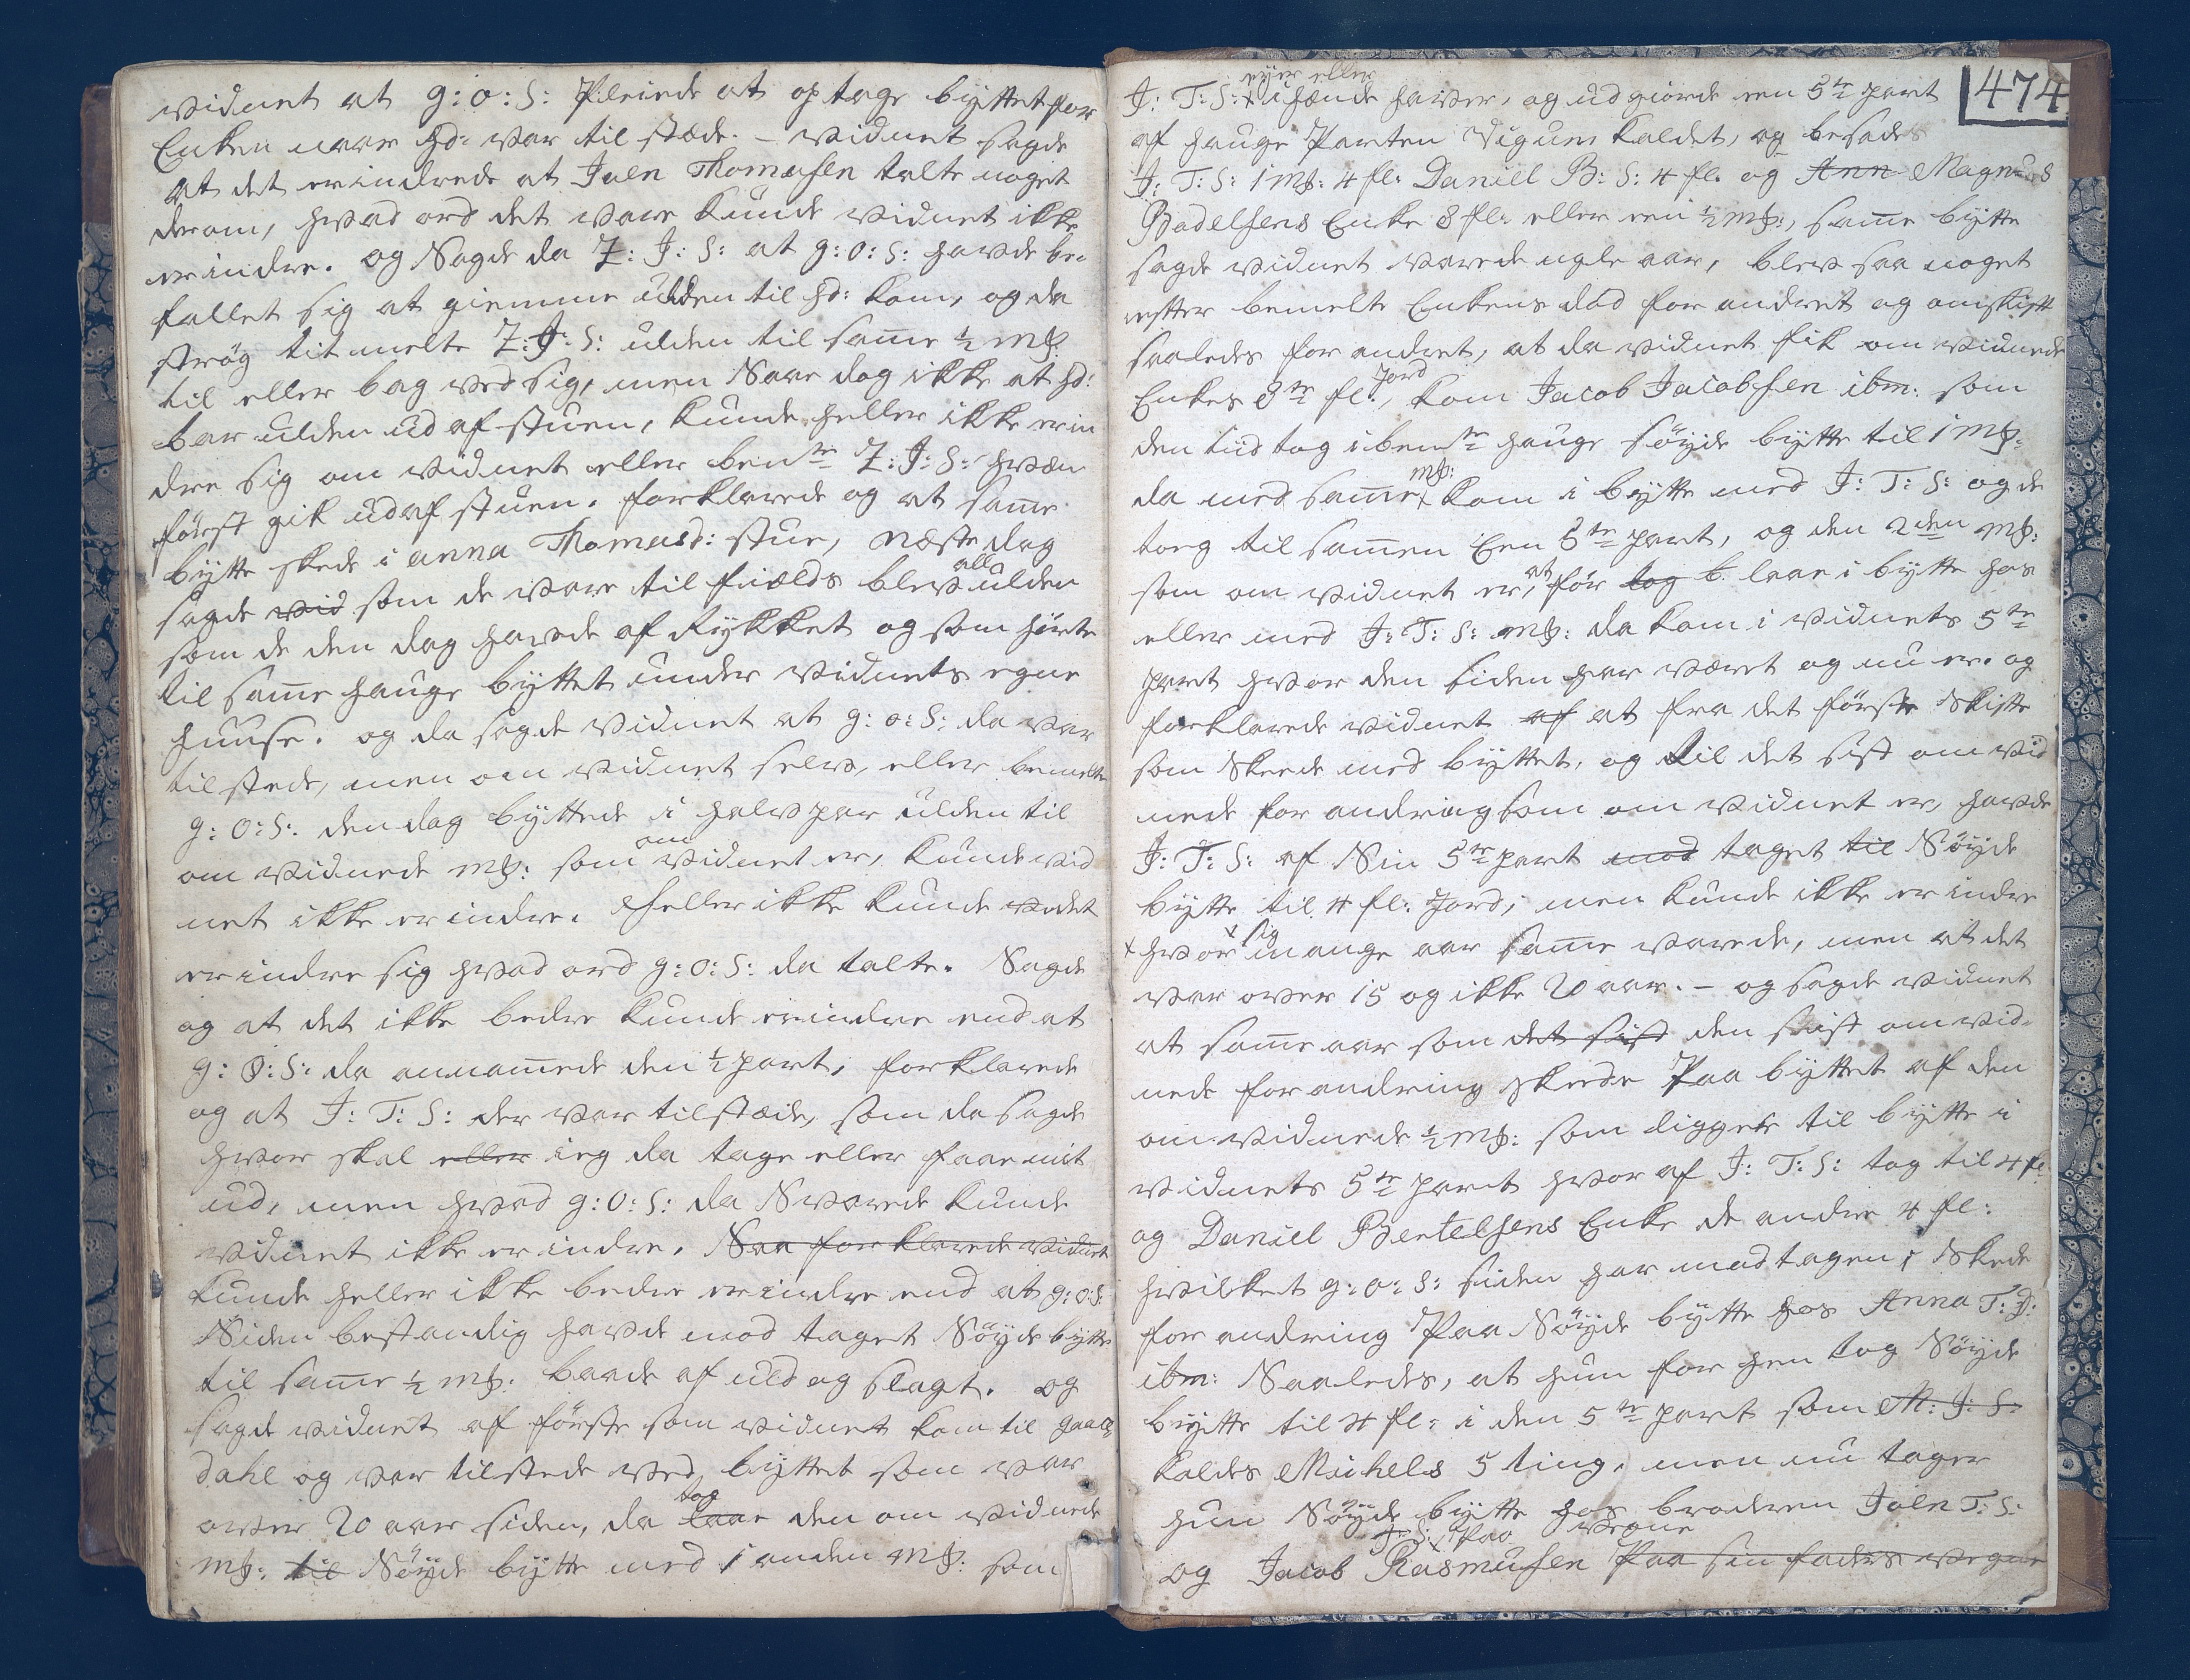 vidnet at G: O: S: Pleiede at optage byttet for
Enken naar hd: var til stæde. – vidnet sagde
at det erindrede at Joen Thomæsen talte noget
derom, hvad ord det vare kunde vidnet ikke
erindre. og Sagde da Z: J: S: at G: O: S: havde be-
fallet sig at giemme ulden til hd: kom, og da
strög tit melte Z: J: S: ulden til samme ½ mk:
til eller bag ved sig, men Saae dog ikke at hd:
bar ulden ud af stuen, kunde heller ikke erin
dre sig om vidnet eller bente Z: J: S: hvem
først gik ud af stuen. forklarede og at samme
bytte skede i Anna Thomasd: stue, næste dag
sagde vid som de vare til fields blev all ulden
som de den dag havde af Rykket og som hörte
til samme hauge byttet under vidnets egne
huuse. og da sagde vidnet at G: O: S: da var
tilstede, men om vidnet selv, eller bemelte
G: O: S: den dag byttede i halv par ulden til
om vidnede mk: som om vidnet er, kunde vid
net ikke erindre. Heller ikke kunde vedet
erindre sig hvad ord G: O: S: da talte. Sagde
og at det ikke bedre kunde erindre end at
G: O: S: da annammede den ½ part, forklarede
og at J: T: S: der var tilstæde, som da sagde
hvor skal eller ieg da tage eller faae mit
ud, men hvad G: O: S: da Svarede kunde
vidnet ikke erindre. Saa forklarede vidnet
kunde heller ikke bedre erindre end at G: O: S:
Siden bestandig havde mod taget Søyde bytte
til samme ½ mk: baade af uld og slagt. og
sagde vidnet af første som vidnet kom til Gaas
dahl og var tilstede ved byttet som var
over 20 aar siden, da laae tog den om vidnede
mk: til Søyde bytte med 1 anden mk: som
474
J: T: S: x eyer eller uhænde haver, og udgiorde een 5te part
af hauge Parten Vigum kaldet, og besade
J: T: S: 1 mk: 4 fl: Daniel B: S: 4 fl. og Ann Magnus
Badelsens Enke 8 fl: eller een ½ mk:, samme bytte
sagde vidnet varede nogle aar, blev saa noget
efter bemelte Enkens död for andret og omskift
saaledes for andret, at da vidnet fik om vidnede
Enkes 8te fl: Jord, kom Jacob Jacobsen ibm: som
den tiid tog i bente hauge söyde bytte til 1 mk:
da med samme x mk: kom i bytte med J: T: S: og de
toeg til sammen Een 5te part, og den 2den mk:
som om vidnet er, at för tog b. laae i bytte hos
eller med J: T: S: mk: da kom i vidnets 5te
part hvor den siden har været og nu er. og
forklarede vidnet af at fra det første Skifte
som Skeede med byttet, og til det sist om vid
nede for andring som om vidnet er, havde
J: T: S: af Sin 5te part mod taget til Søyde
bytte til 4 fl: Jord, men kunde ikke erindre
x hvor x sig mange aar samme varede, men at det
var over 15 og ikke 20 aar. – og sagde vidnet
at samme aar som det sist den sist om vid-
nede forandring skede Paa byttet af den
om vidnede ½ mk: som liggete til bytte i
vidnets 5te part hvor af J: T: S: tog til 4 fl:
og Daniel Bertelsens Enke de andre 4 fl:
hvilket G: O: S: siden har modtagen, Skede
forandring Paa Søyde bytte hos Anna T: D:
ibm: Saaledes, at hun for hen tog Søyde
bytte til 4 fl: i den 5te part som M: J: S:
kaldes Michels 5ting, men nu tager
hun Søyde bytte hos broderen Joen T: S:
og Jacob J: S: x Paa Rasmusen vegne Paa sin faders vegne